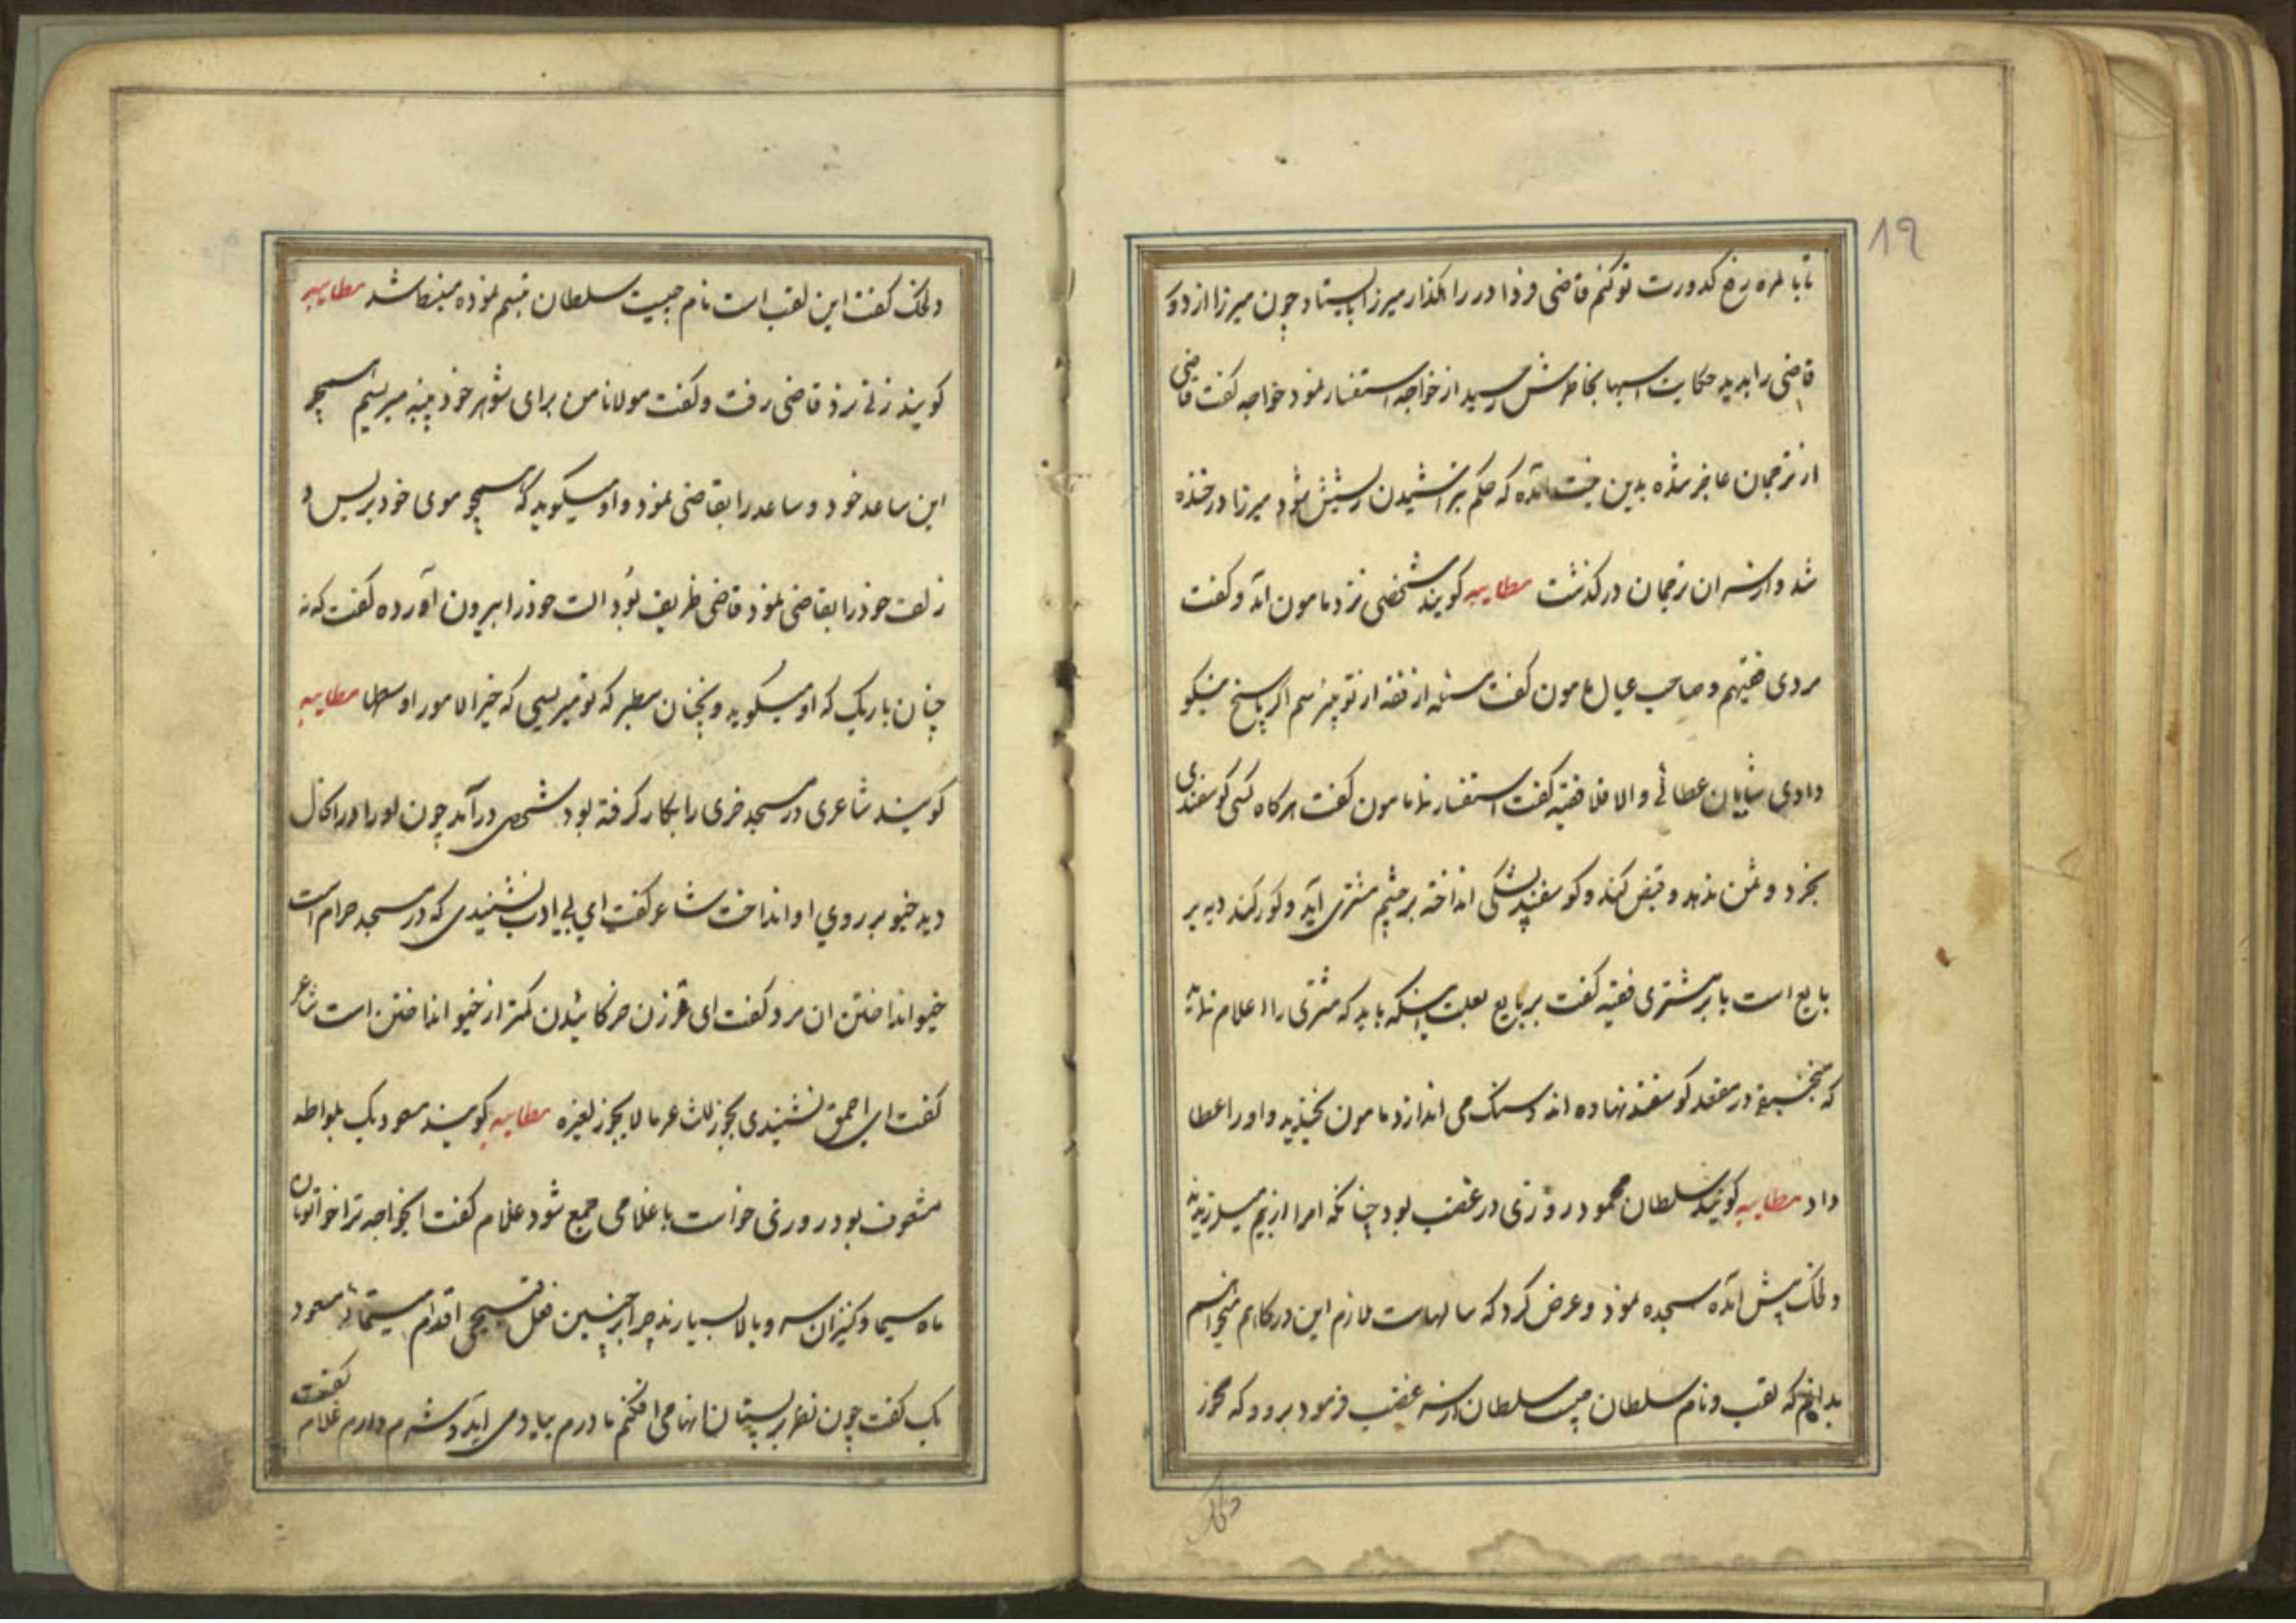 19
تا بالمره رفع کدورت تو کنم قاضی فردا در راهگذار میرزا بایستاد چون میرزا از دور
قاضی را بدید حکایت اسبها بخاطرش رسید از خواجه استفسار نمود خواجه گفت قاضی
از ترجمان عاجز شده بدین جهت آمده که حکم بتراشیدن ریشش شود میرزا در خنده
شد و از سر ان ترجمان در گذشت مطایبه گویند شخصی نزد مامون آمد و گفت
مردی فقیهم و صاحب عیال مامون گفت مسئله از فقه از تو بپرسم اگر پاسخ نیکو
دادی شایان عطائی والا فلا فقیه گفت استفسار نما مامون گفت هرگاه کسی گوسفندی
بخرد و ثمن بدهد و قبض کند و گوسفند پشکی انداخته بر چشم مشتری آید و کور کند دیه بر
بایع است یا بر مشتری فقیه گفت بر بایع بعلت اینکه باید که مشتری را اعلام نماید
که منجنیقی در مقعد گوسفند نهاده اند و سنگ می اندازد مامون بخندید و او را عطا
داد مطایبه گویند سلطان محمود روزی در غضب بود چنانکه امرا از بیم میلرزیدند
دلخک پیش آمده سجده نمود و عرض کرد که سالهاست ملازم این درگاهم میخواهم
بدانم که لقب و نام سلطان چیست سلطان از سر غضب فرمود برو که
دلخک
دلخک گفت این لقب است نام چیست سلطان تبسم نموده منبسط شد مطایبه
گویند زنی نزد قاضی رفت و گفت مولانا من برای شوهر خود پنبه میریسم همچو
این ساعد خود و ساعد را بقاضی نمود و او میگوید که همچو موی خود بریس و
زلف خود را بقاضی نمود قاضی ظریف بود الت خود را بیرون آورده گفت که نه
چنان باریک که او میگوید و نچنان سطبر که تو میریسی که خیر الامور اوسطها مطایبه
گویند شاعری در مسجد خری را بکار گرفته بود شخصی درآمد چون او را در انحال
دید خیو بر روی او انداخت شاعر گفت ای بی ادب نشنیدی که در مسجد حرام است
خیو انداختن ان مرد گفت ای زن خر گائیدن کمتر از خیو انداختن است شاعر
گفت ای احمق نشنیدی یجوز للشاعر ما لا یجوز لغیره مطایبه گویند مسعود بک بلواطه
مشعوف بود روزی خواست با غلامی جمع شود غلام گفت ایخواجه ترا خواتونان
ماه سیما و کنیزان سرو بالا بسیارند چرا بر چنین فعل قبیحی اقدام مینمائی مسعود
بک گفت چون نظر بر پستان انها می افکنم مادرم بیاد می آید و شرم دارم غلام گفت